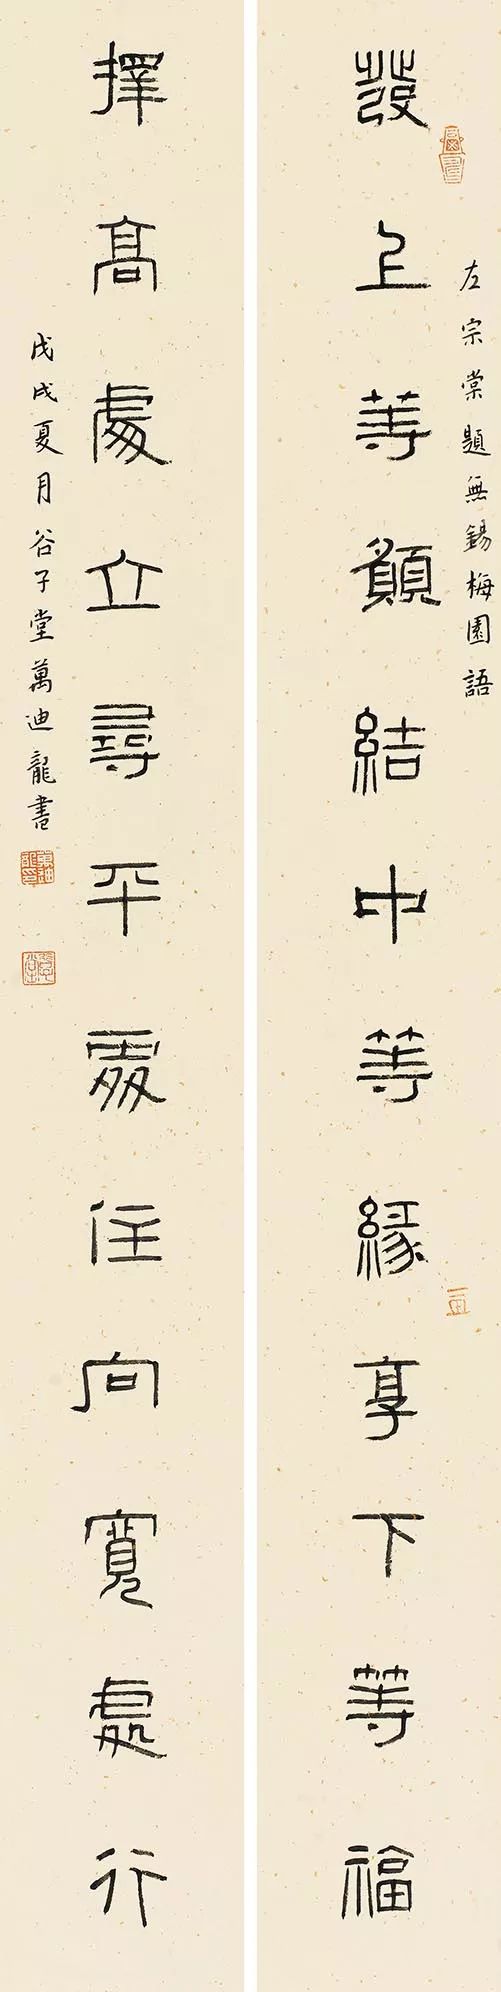 左宗棠題無錫梅園語
發上等願結中等緣享下等福
擇高處立尋平處住向寬處行
戊戌夏月谷子堂萬迪龍書